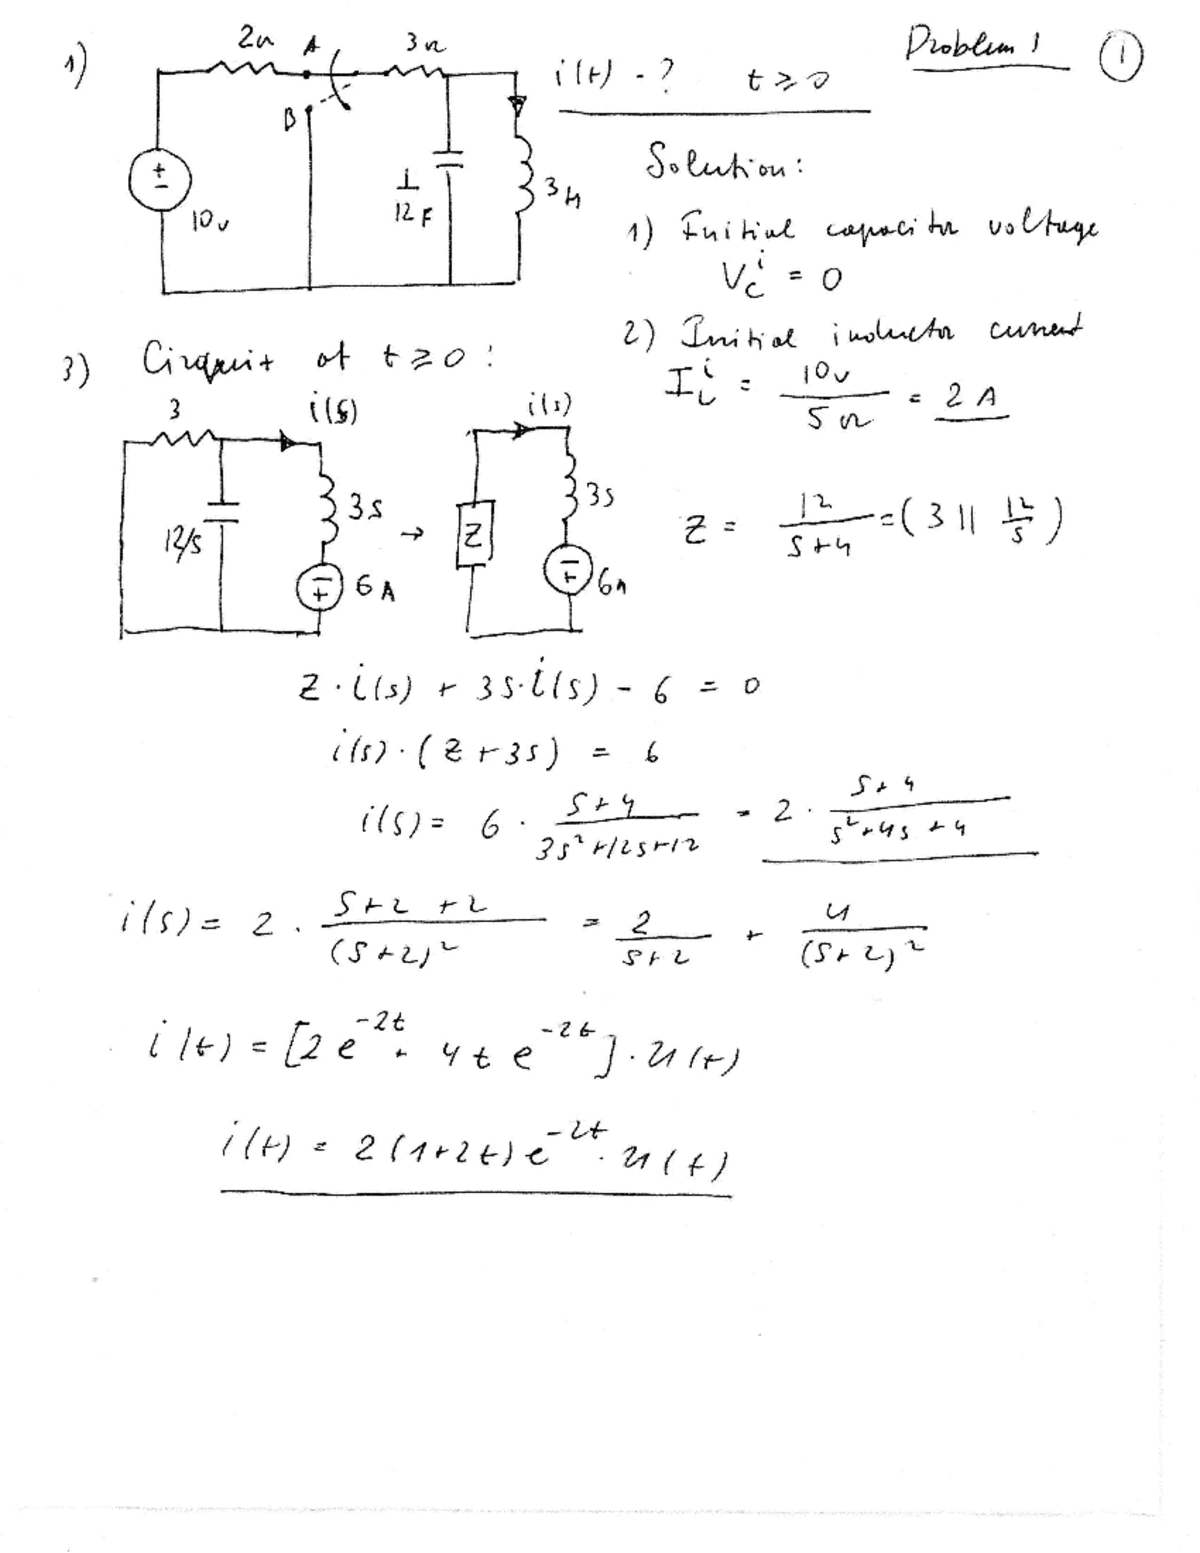 Problem 1 ①
1)
2Ω A 3Ω
i(t) - ? t ≥ 0
B
+
-
10v
1
12 F
3H
Solution:
1) Initial capacitor voltage
V_C^i = 0
2) Initial inductor current
I_L^i = 10v / 5Ω = 2 A
3) Cirquit at t ≥ 0 :
3 i(s)
12/s
3s
-
+
6A
→
i(s)
Z
3s
-
+
6A
Z = 12 / (s+4) = (3 || 12/s)
Z · i(s) + 3s · i(s) - 6 = 0
i(s) · (Z + 3s) = 6
i(s) = 6 · (s+4) / (3s² + 12s + 12) = 2 · (s+4) / (s² + 4s + 4)
i(s) = 2 · (s+2 +2) / (s+2)² = 2 / (s+2) + 4 / (s+2)²
i(t) = [2e^-2t + 4te^-2t] · u(t)
i(t) = 2(1+2t)e^-2t · u(t)